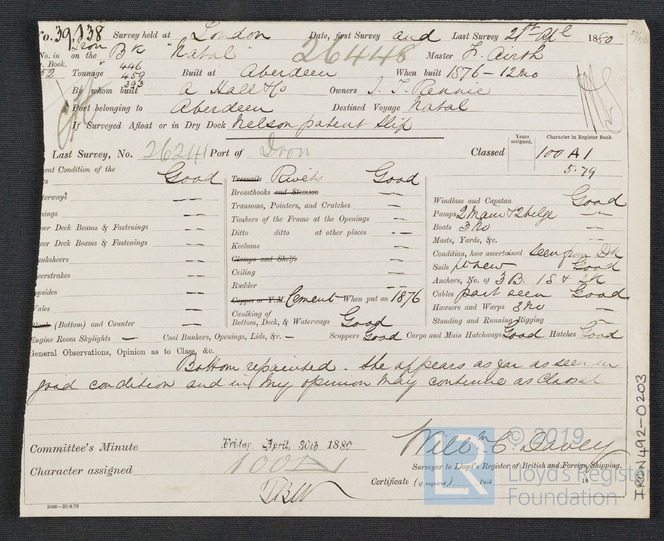 No. 39,138 Survey held at London Date, first Survey and Last Survey 21st Apl 1880
No. in Iron on the Bk "Natal" 26448 Master J. Airth
Book. 446
52 Tonnage 459 Built at Aberdeen When built 1876 - 12 mo
393
By whom built A Hall & Co Owners J. T. Rennie
Port belonging to Aberdeen Destined Voyage Natal
If Surveyed Afloat or in Dry Dock Nelson patent Slip
Last Survey, No. 26241 Port of Iron Classed
Years assigned. Character in Register Book.
100 A1
5.79
ent Condition of the Good
aterways?
nings
er Deck Beams & Fastenings
er Deck Beams & Fastenings
unksheers
cerstrakes
opsides
Wales
(Bottom) and Counter
Engine Room Skylights —
Treenails Rivets Good
Breasthooks and Stemson —
Transoms, Pointers, and Crutches —
Timbers of the Frame at the Openings —
Ditto ditto at other places —
Keelsons —
Clamps and Shelfs
Ceiling —
Rudder —
Copper or Y.M. Cement When put on 1876
Caulking of
Bottom, Deck, & Waterways Good
Coal Bunkers, Openings, Lids, &c. —
Windlass and Capstan Good
Pumps 2 Main & 2 bilge —
Boats 3 No —
Masts, Yards, &c. —
Condition, how ascertained seen from Dk
Sails pt new Good
Anchors, No. of 3 B. 1 S & 2 K
Cables part seen Good
Hawsers and Warps 3 No —
Standing and Running Rigging —
Scuppers Good Cargo and Main Hatchways Good Hatches Good
General Observations, Opinion as to Class, &c.
Bottom repainted. She appears as far as seen in
good condition and in my opinion may continue as Classed
Committee's Minute Friday, April, 30th 1880
Character assigned 100 A1
Willm C. Davey
Surveyor to Lloyd's Register of British and Foreign Shipping.
Certificate (if required) Paid 18
5000—23/4/79
IRON492-0203
© 2019
LR
Lloyd's Register
Foundation